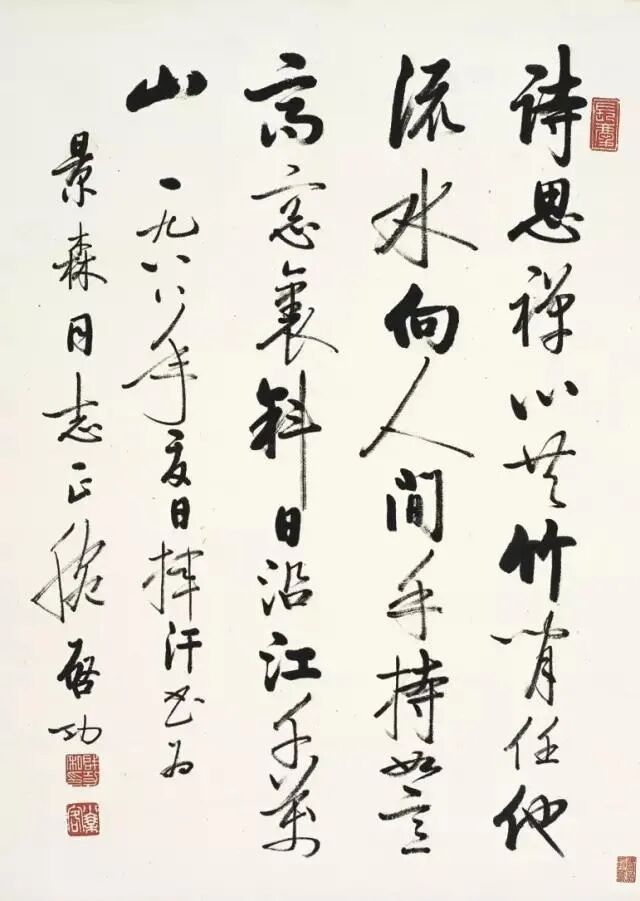 诗思禅心共竹閒任他
流水向人間手持如意
高窓裏斜日沿江千萬
山 一九八八年夏日揮汗书为
景森同志正腕 啓功